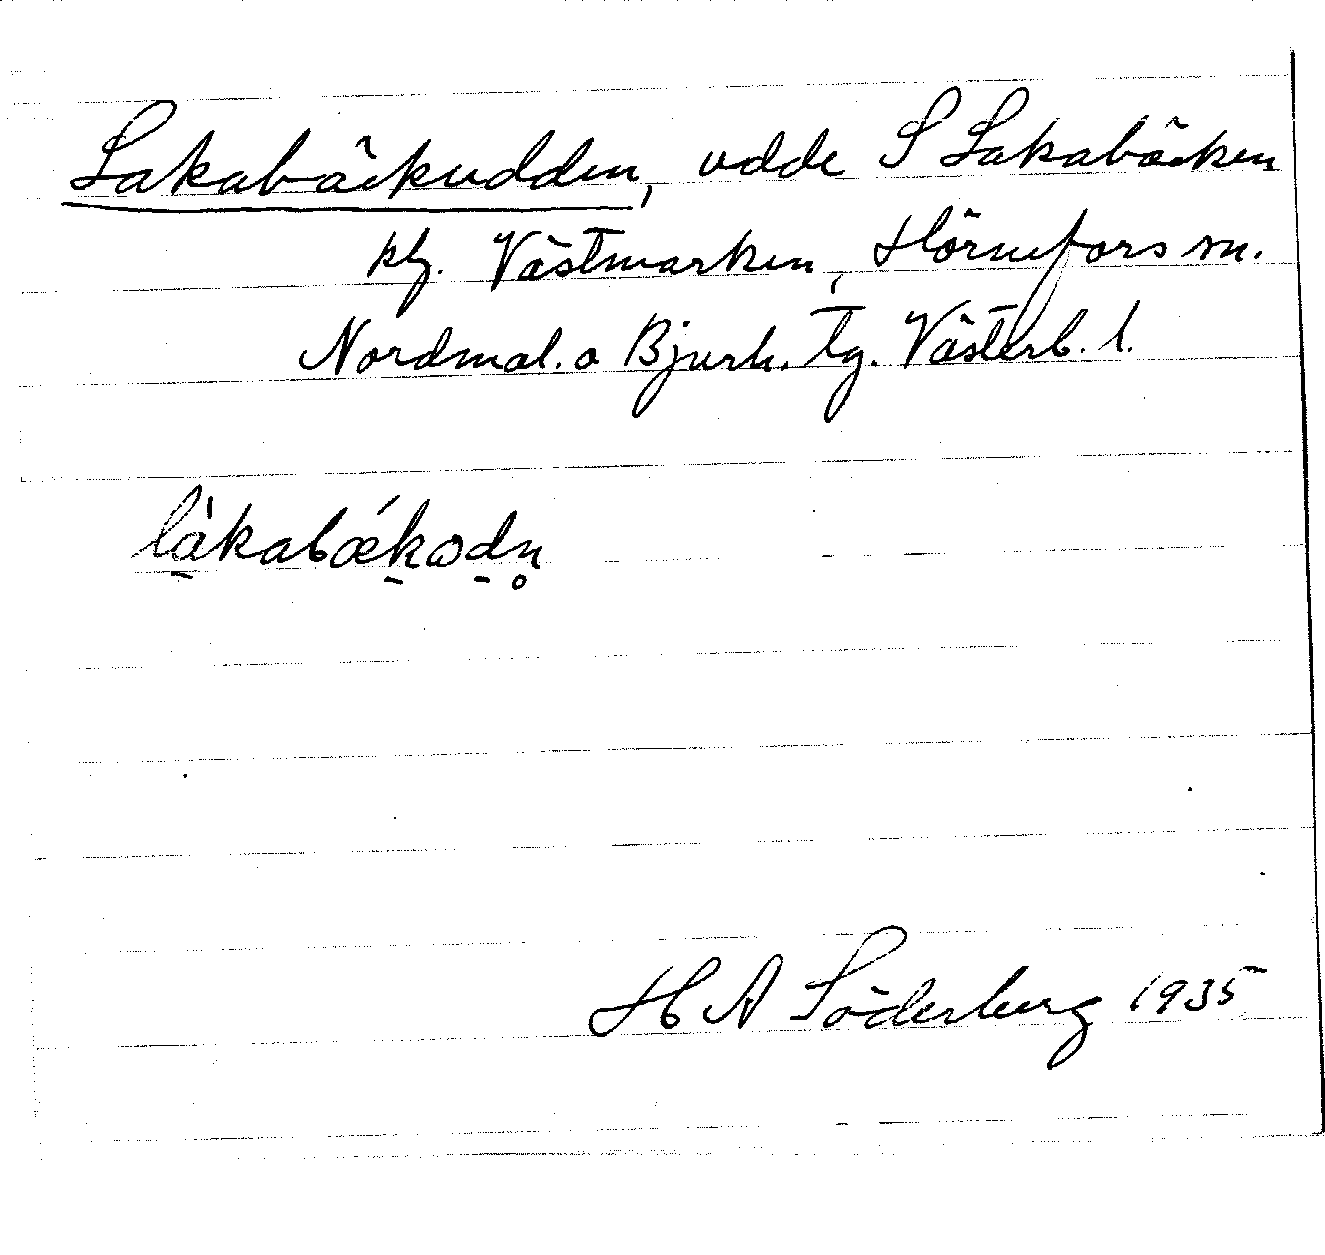 Lakabäckudden, udde S Lakabäcken
klg. Västmarken, Hörnefors sn.
Nordmal. o Bjurh. tg. Västerb. l.
là̠kabǽk̠ωd̠n̥
H A Söderberg 1935